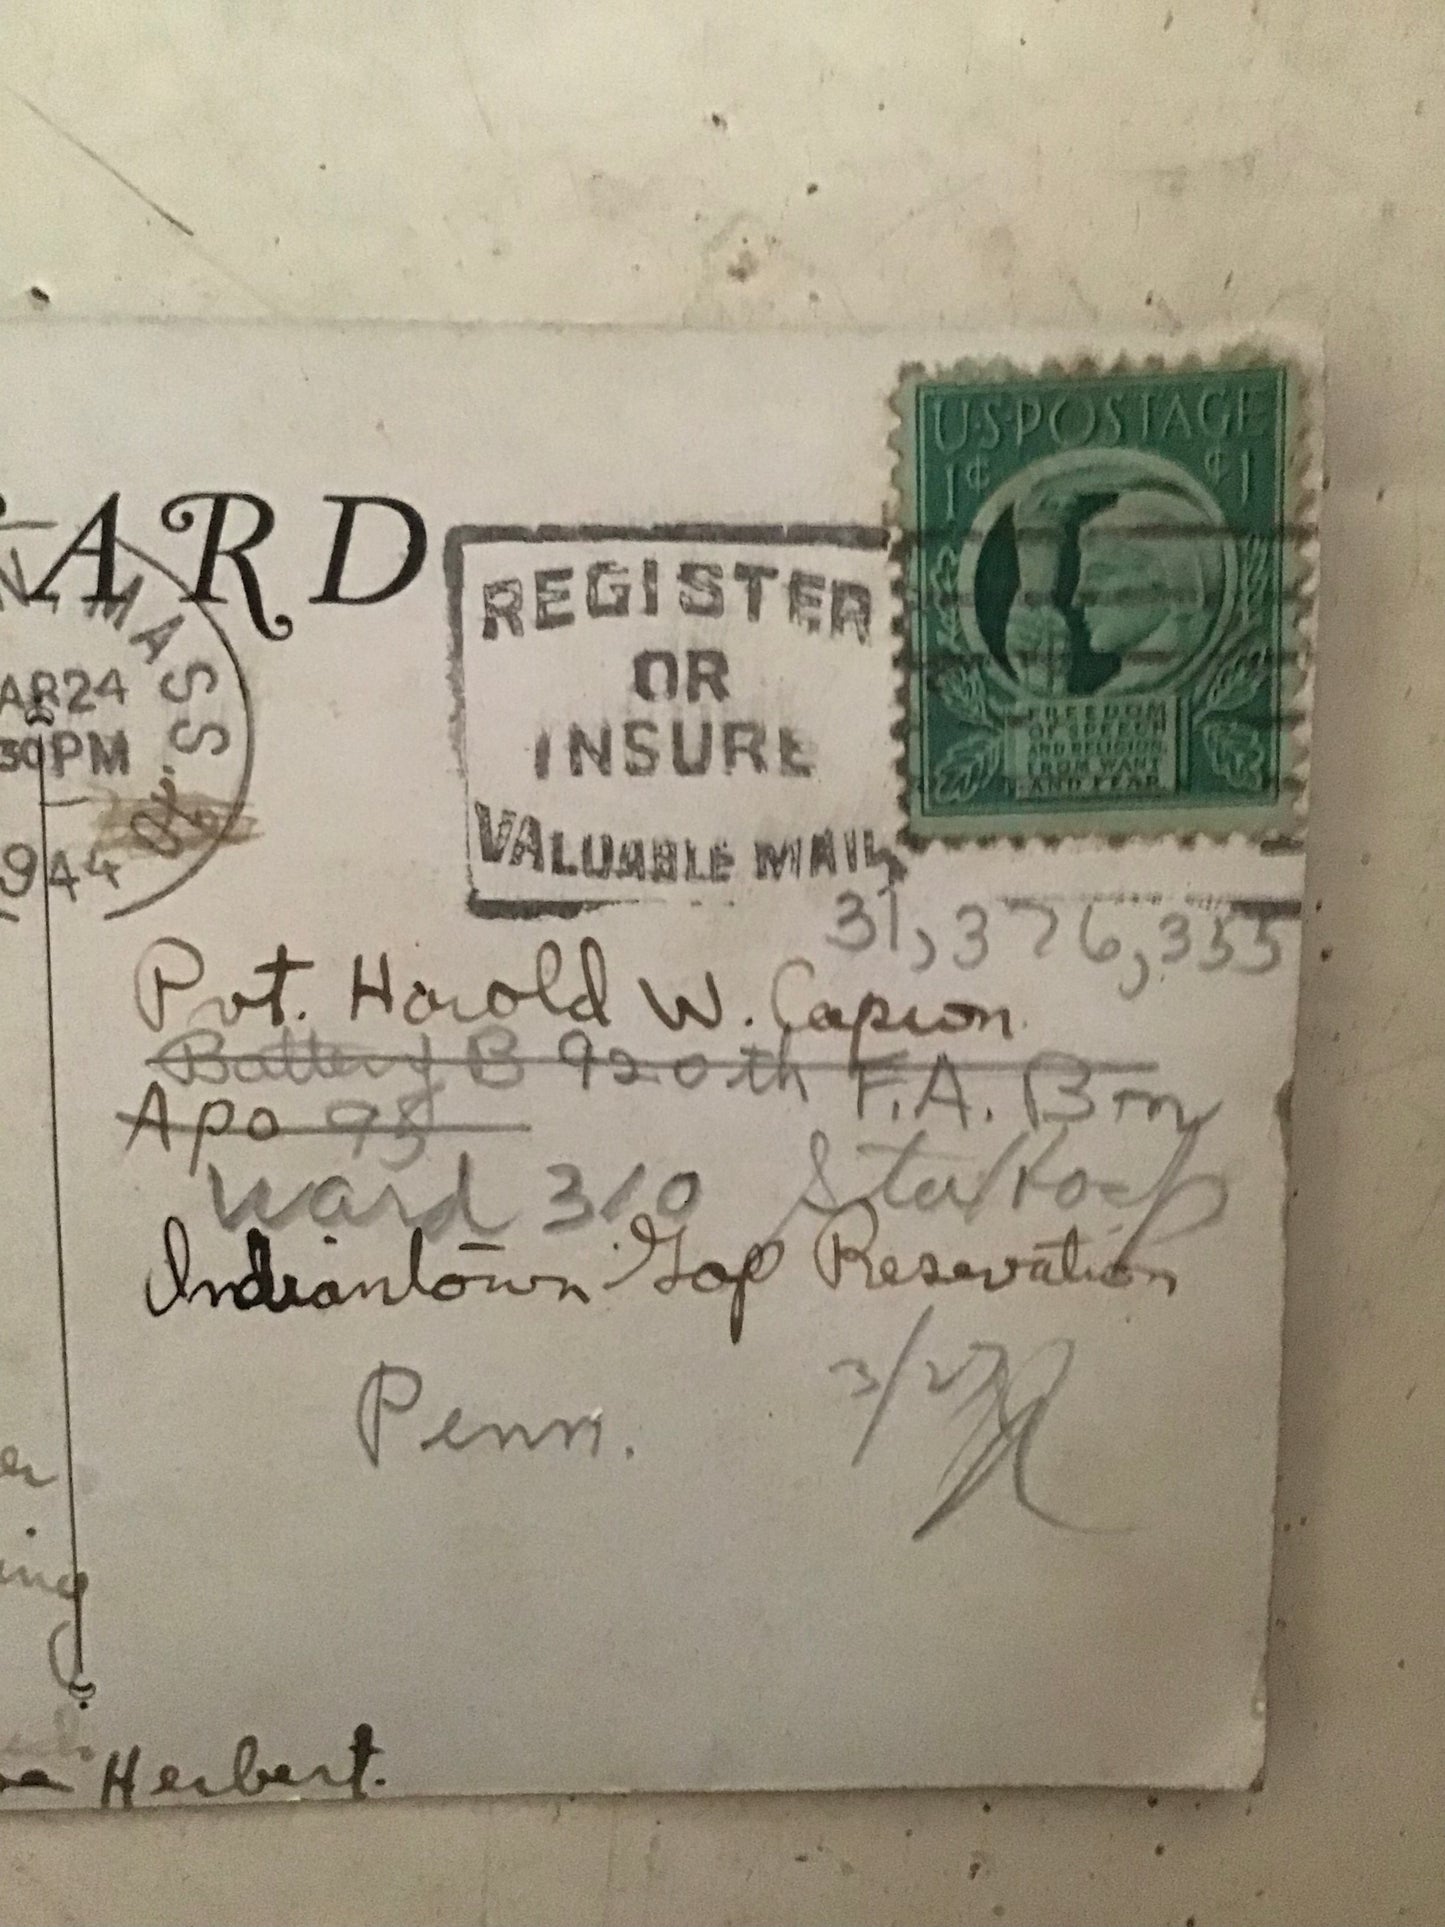 U.S. POSTAGE
1¢ ¢1
FREEDOM
OF SPEECH
AND RELIGION,
FROM WANT
AND FEAR
ARD
MASS.
24
30PM
1944
REGISTER
OR
INSURE
VALUABLE MAIL
31,376,355
Pvt. Harold W. Capron
Battery B 920th F.A. Bn
Apo 95
Ward 310 Sta Hosp
Indiantown Gap Reservation
Penn.
3/27
er
ing
Herbert.